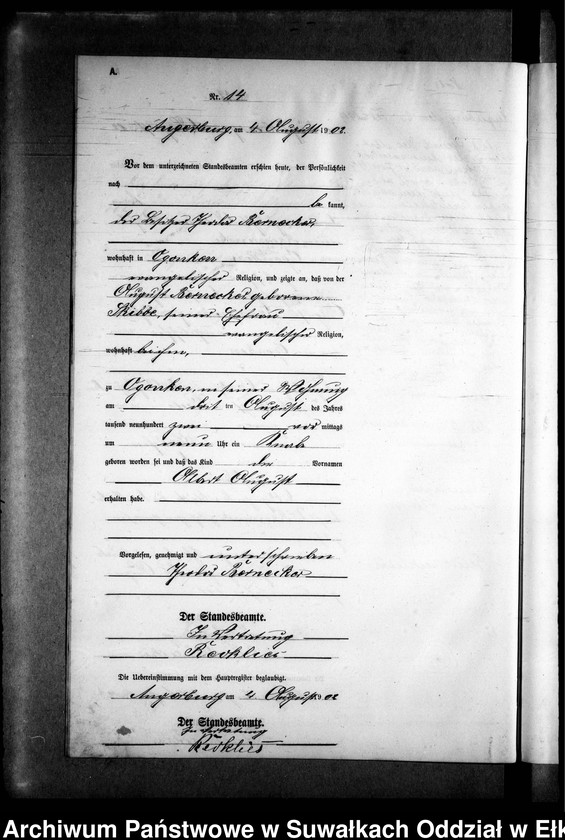 A.
Nr. 14
Angerburg, am 4. August 1902
Vor dem unterzeichneten Standesbeamten erschien heute, der Persönlichkeit
nach
be kannt,
der Besitzer
wohnhaft in Ogonken
evangelischer Religion, und zeigte an, daß von der
geborenen
Skibbe, seiner Ehefrau
evangelischer Religion,
wohnhaft bei ihm,
zu Ogonken, in seiner Wohnung
am ten August des Jahres
tausend neunhundert zwei vor mittags
um neun Uhr ein Knabe
geboren worden sei und daß das Kind den Vornamen
Albert August
erhalten habe.
Vorgelesen, genehmigt und unterschrieben
Der Standesbeamte.
In Vertretung
Die Uebereinstimmung mit dem Hauptregister beglaubigt.
Angerburg am 4. August 1902
Der Standesbeamte.
In Vertretung
Archiwum Państwowe w Suwałkach Oddział w Ełk